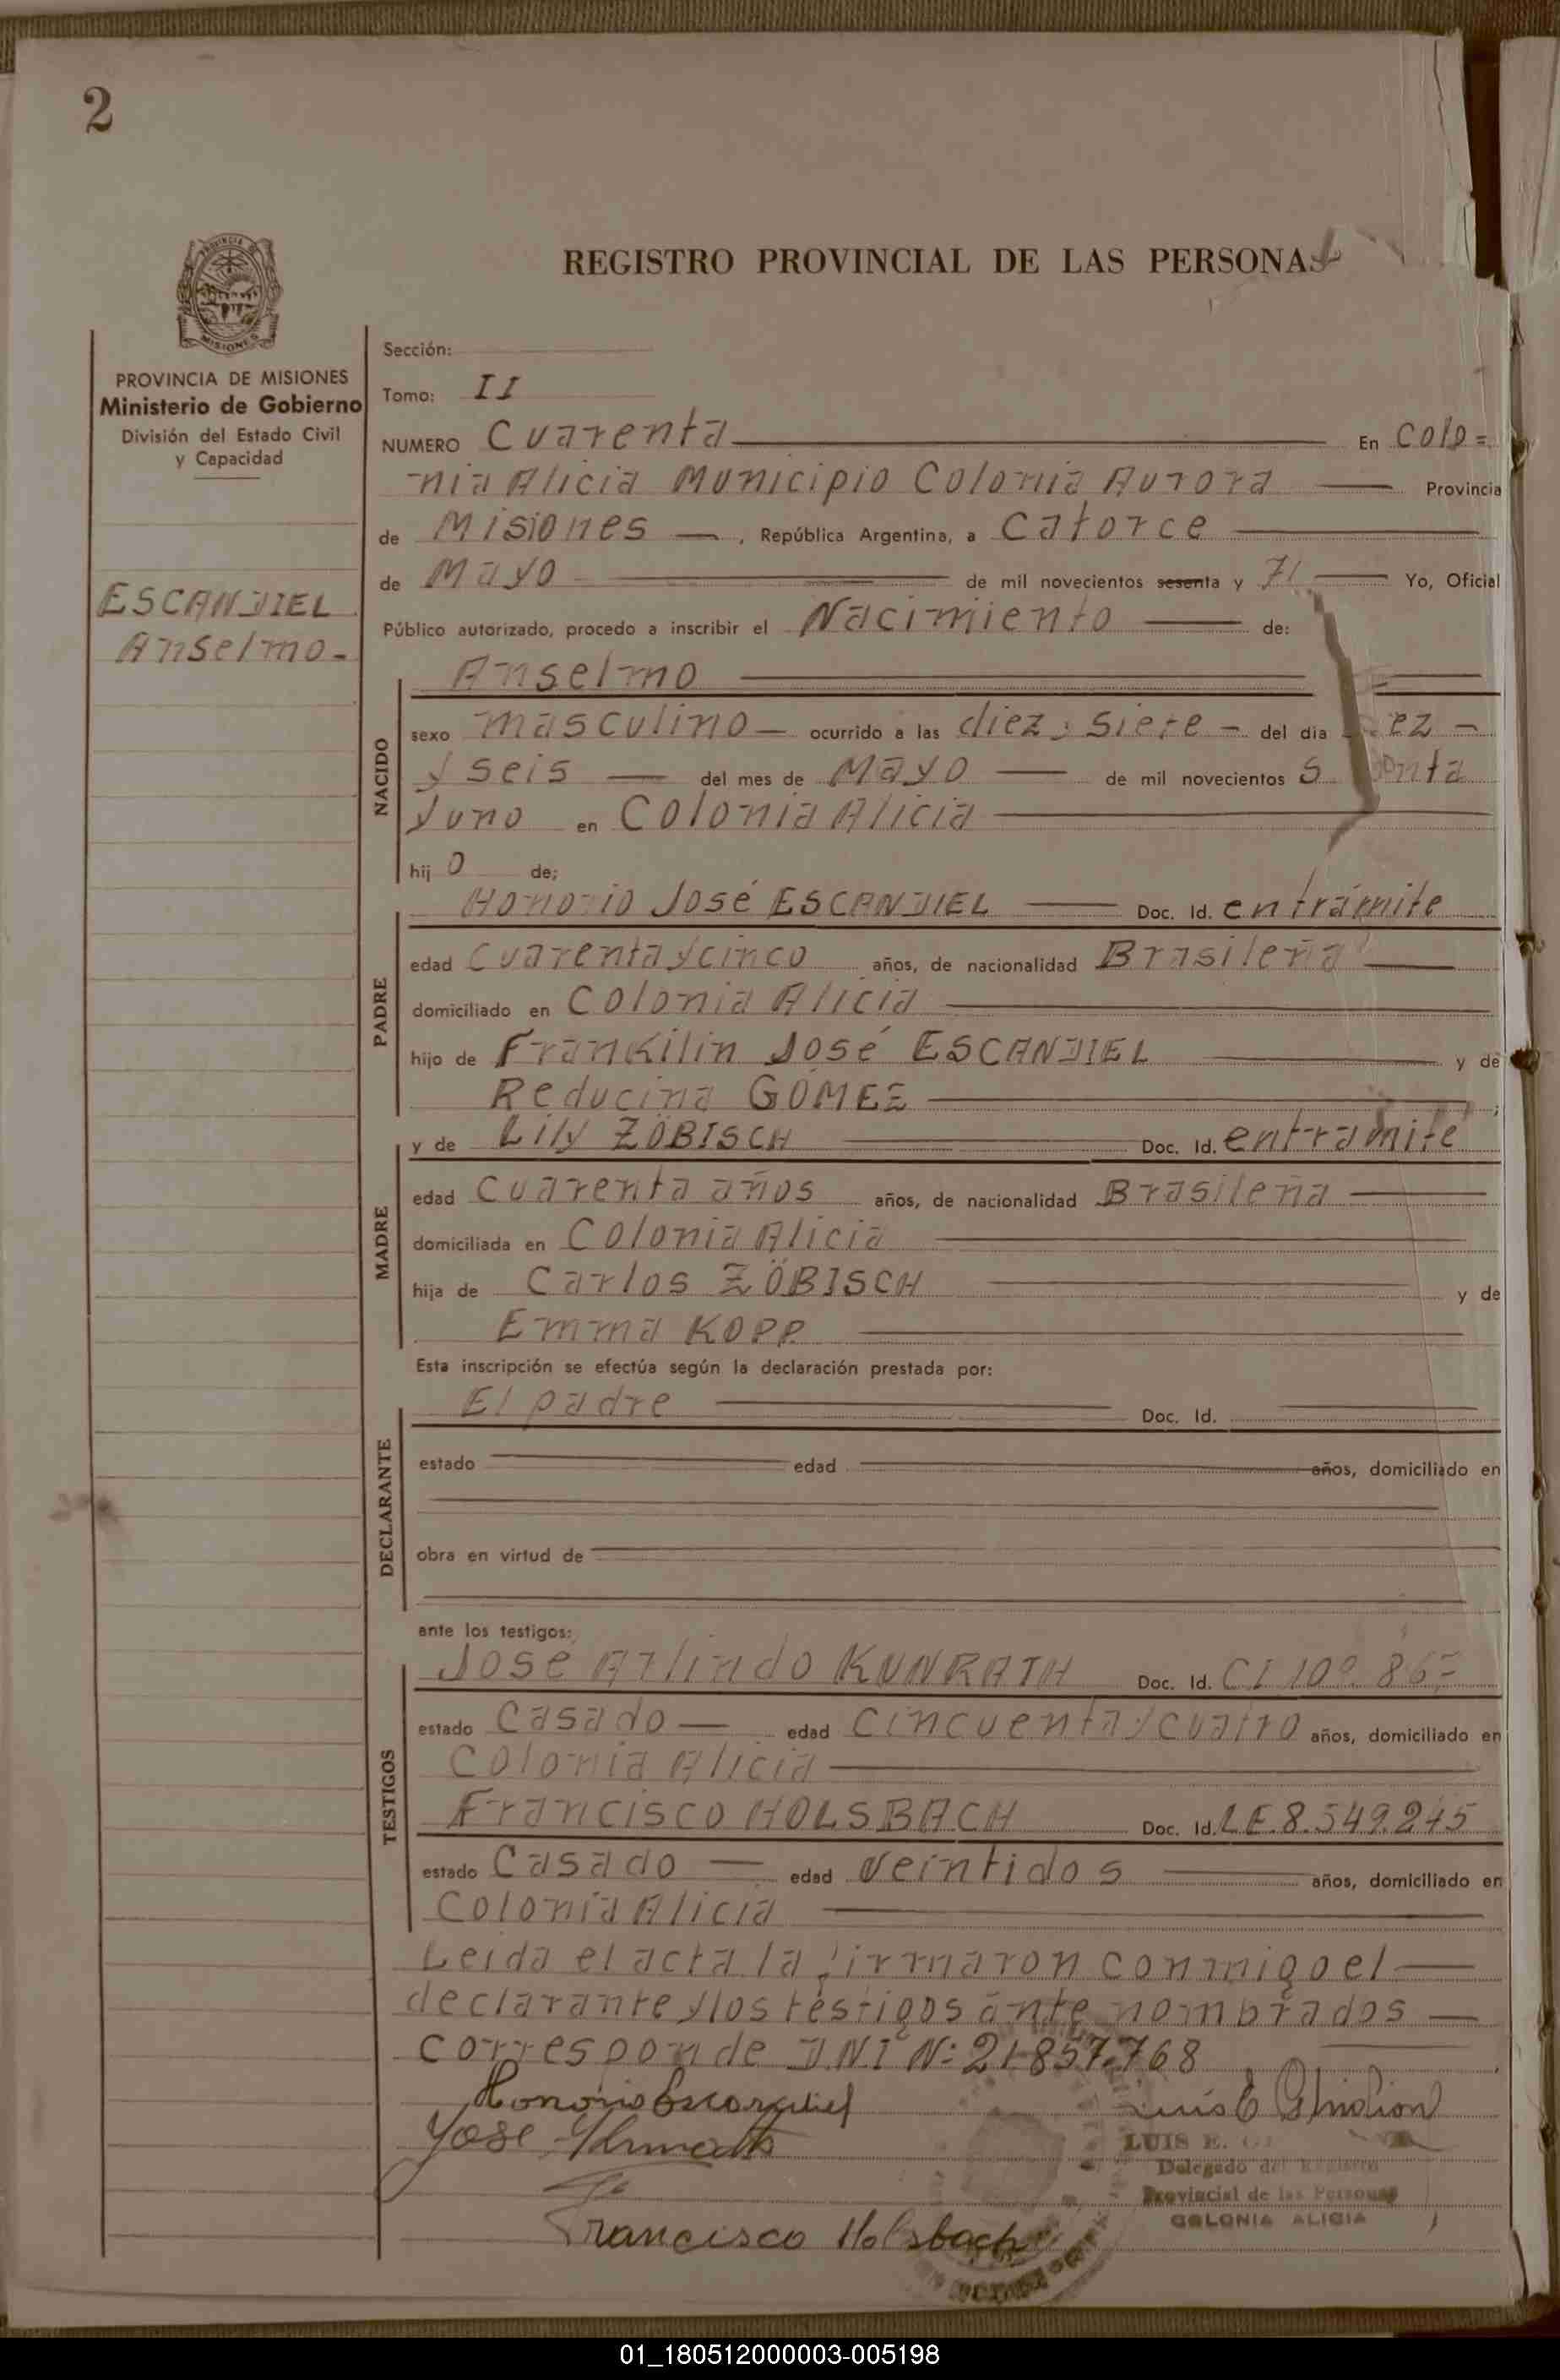 2
REGISTRO PROVINCIAL DE LAS PERSONAS
PROVINCIA DE MISIONES
Ministerio de Gobierno
División del Estado Civil
y Capacidad
ESCANDIEL
Anselmo.-
Sección:
Tomo: II
NUMERO Cuarenta En Colo=
nia Alicia Municipio Colonia Aurora Provincia
de Misiones, República Argentina, a Catorce
de Mayo de mil novecientos sesenta y 71 Yo, Oficial
Público autorizado, procedo a inscribir el Nacimiento de:
NACIDO
Anselmo
sexo masculino ocurrido a las diez y siete del día
y seis del mes de Mayo de mil novecientos
y uno en Colonia Alicia
hijo de;
PADRE
Honorio José ESCANDIEL Doc. Id. entrámite
edad Cuarenta y cinco años, de nacionalidad Brasileña
domiciliado en Colonia Alicia
hijo de Frankilin José ESCANDIEL y de
Reducina GÓMEZ ;
MADRE
y de Lily ZÖBISCH Doc. Id. entramite
edad Cuarenta años años, de nacionalidad Brasileña
domiciliada en Colonia Alicia
hija de Carlos ZÖBISCH y de
Emma KOPP.
Esta inscripción se efectúa según la declaración prestada por:
DECLARANTE
El padre Doc. Id.
estado edad años, domiciliado en
obra en virtud de
ante los testigos:
TESTIGOS
José Arlindo KUNRATH Doc. Id. CI
estado Casado edad Cincuenta y cuatro años, domiciliado en
Colonia Alicia
Francisco HOLSBACH Doc. Id. LE.8.549.245
estado Casado edad Veintidos años, domiciliado en
Colonia Alicia
Leida el acta la firmaron conmigo el
declarante y los testigos ante nombrados
corresponde D.N.I N: 21.857.768
Honorio Escandiel
José
Francisco Holsbach
LUIS E.
Delegado del Registro
Provincial de las Personas
COLONIA ALICIA
01_180512000003-005198